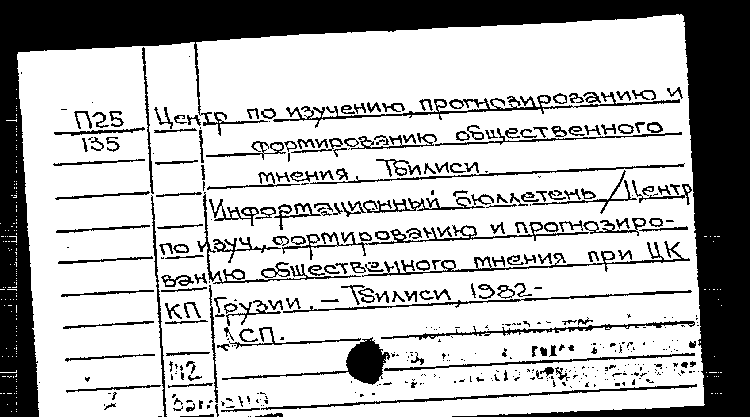 П25 Центр по изучению, прогнозированию и
135 формированию общественного
мнения. Тбилиси.
Информационный бюллетень / Центр
по изуч., формированию и прогнозиро-
ванию общественного мнения при ЦК
КП Грузии. — Тбилиси, 1982-
ДСП.